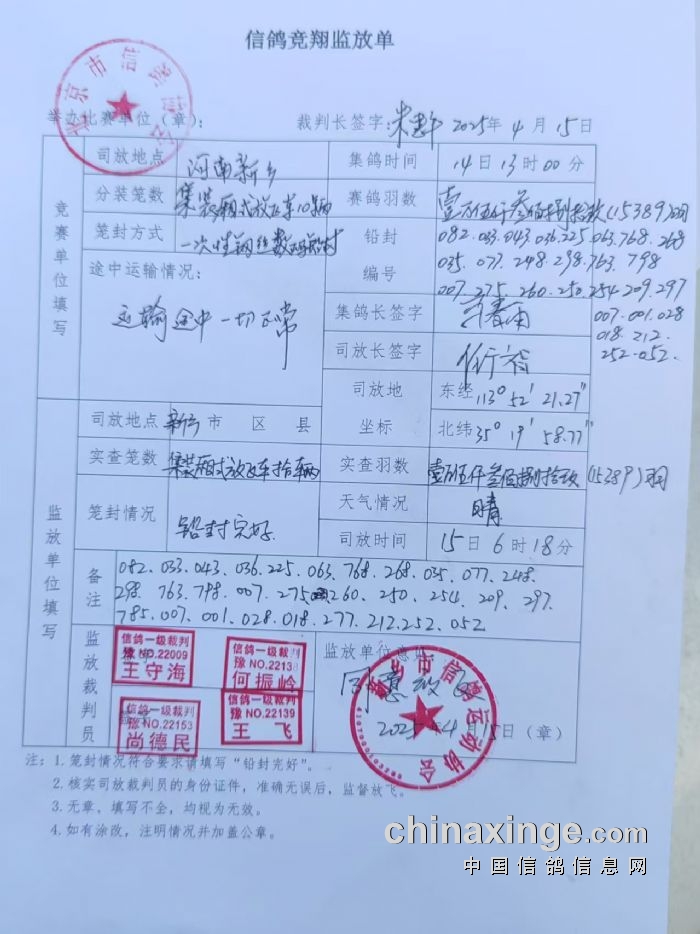 信鸽竞翔监放单
北京市信鸽协会
举办比赛单位(章): 裁判长签字: 2025年4月15日
竞赛单位填写
司放地点 河南新乡 集鸽时间 14日13时00分
分装笼数 集装厢式放飞车10辆 赛鸽羽数 壹万伍仟叁佰捌拾玖(15389)羽
笼封方式 一次性钢丝数码铅封 铅封编号 082.033.043.036.225.063.768.268
035.077.248.298.763.798
007.275.260.250.254.209.297
007.001.028
018.212.
252.052.
途中运输情况:
运输途中一切正常
集鸽长签字
司放长签字
司放地坐标 东经113°52′21.27″
北纬35°19′58.77″
监放单位填写
司放地点 新乡市 区 县
实查笼数 集装厢式放飞车拾辆 实查羽数 壹万伍仟叁佰捌拾玖(15389)羽
笼封情况 铅封完好 天气情况 晴
司放时间 15日6时18分
备注 082.033.043.036.225.063.768.268.035.077.248.
298.763.798.007.275.260.250.254.209.297.
785.007.001.028.018.277.212.252.052
监放裁判员
信鸽一级裁判
豫NO.22009
王守海
信鸽一级裁判
豫NO.22138
何振岭
信鸽一级裁判
豫NO.22153
尚德民
信鸽一级裁判
豫NO.22139
王飞
监放单位意见:
同意放飞
2025年4月15日(章)
新乡市信鸽运动协会
注:1.笼封情况符合要求请填写“铅封完好”。
2.核实司放裁判员的身份证件,准确无误后,监督放飞。
3.无章、填写不全,均视为无效。
4.如有涂改,注明情况并加盖公章。
chinaxinge.com
中国信鸽信息网